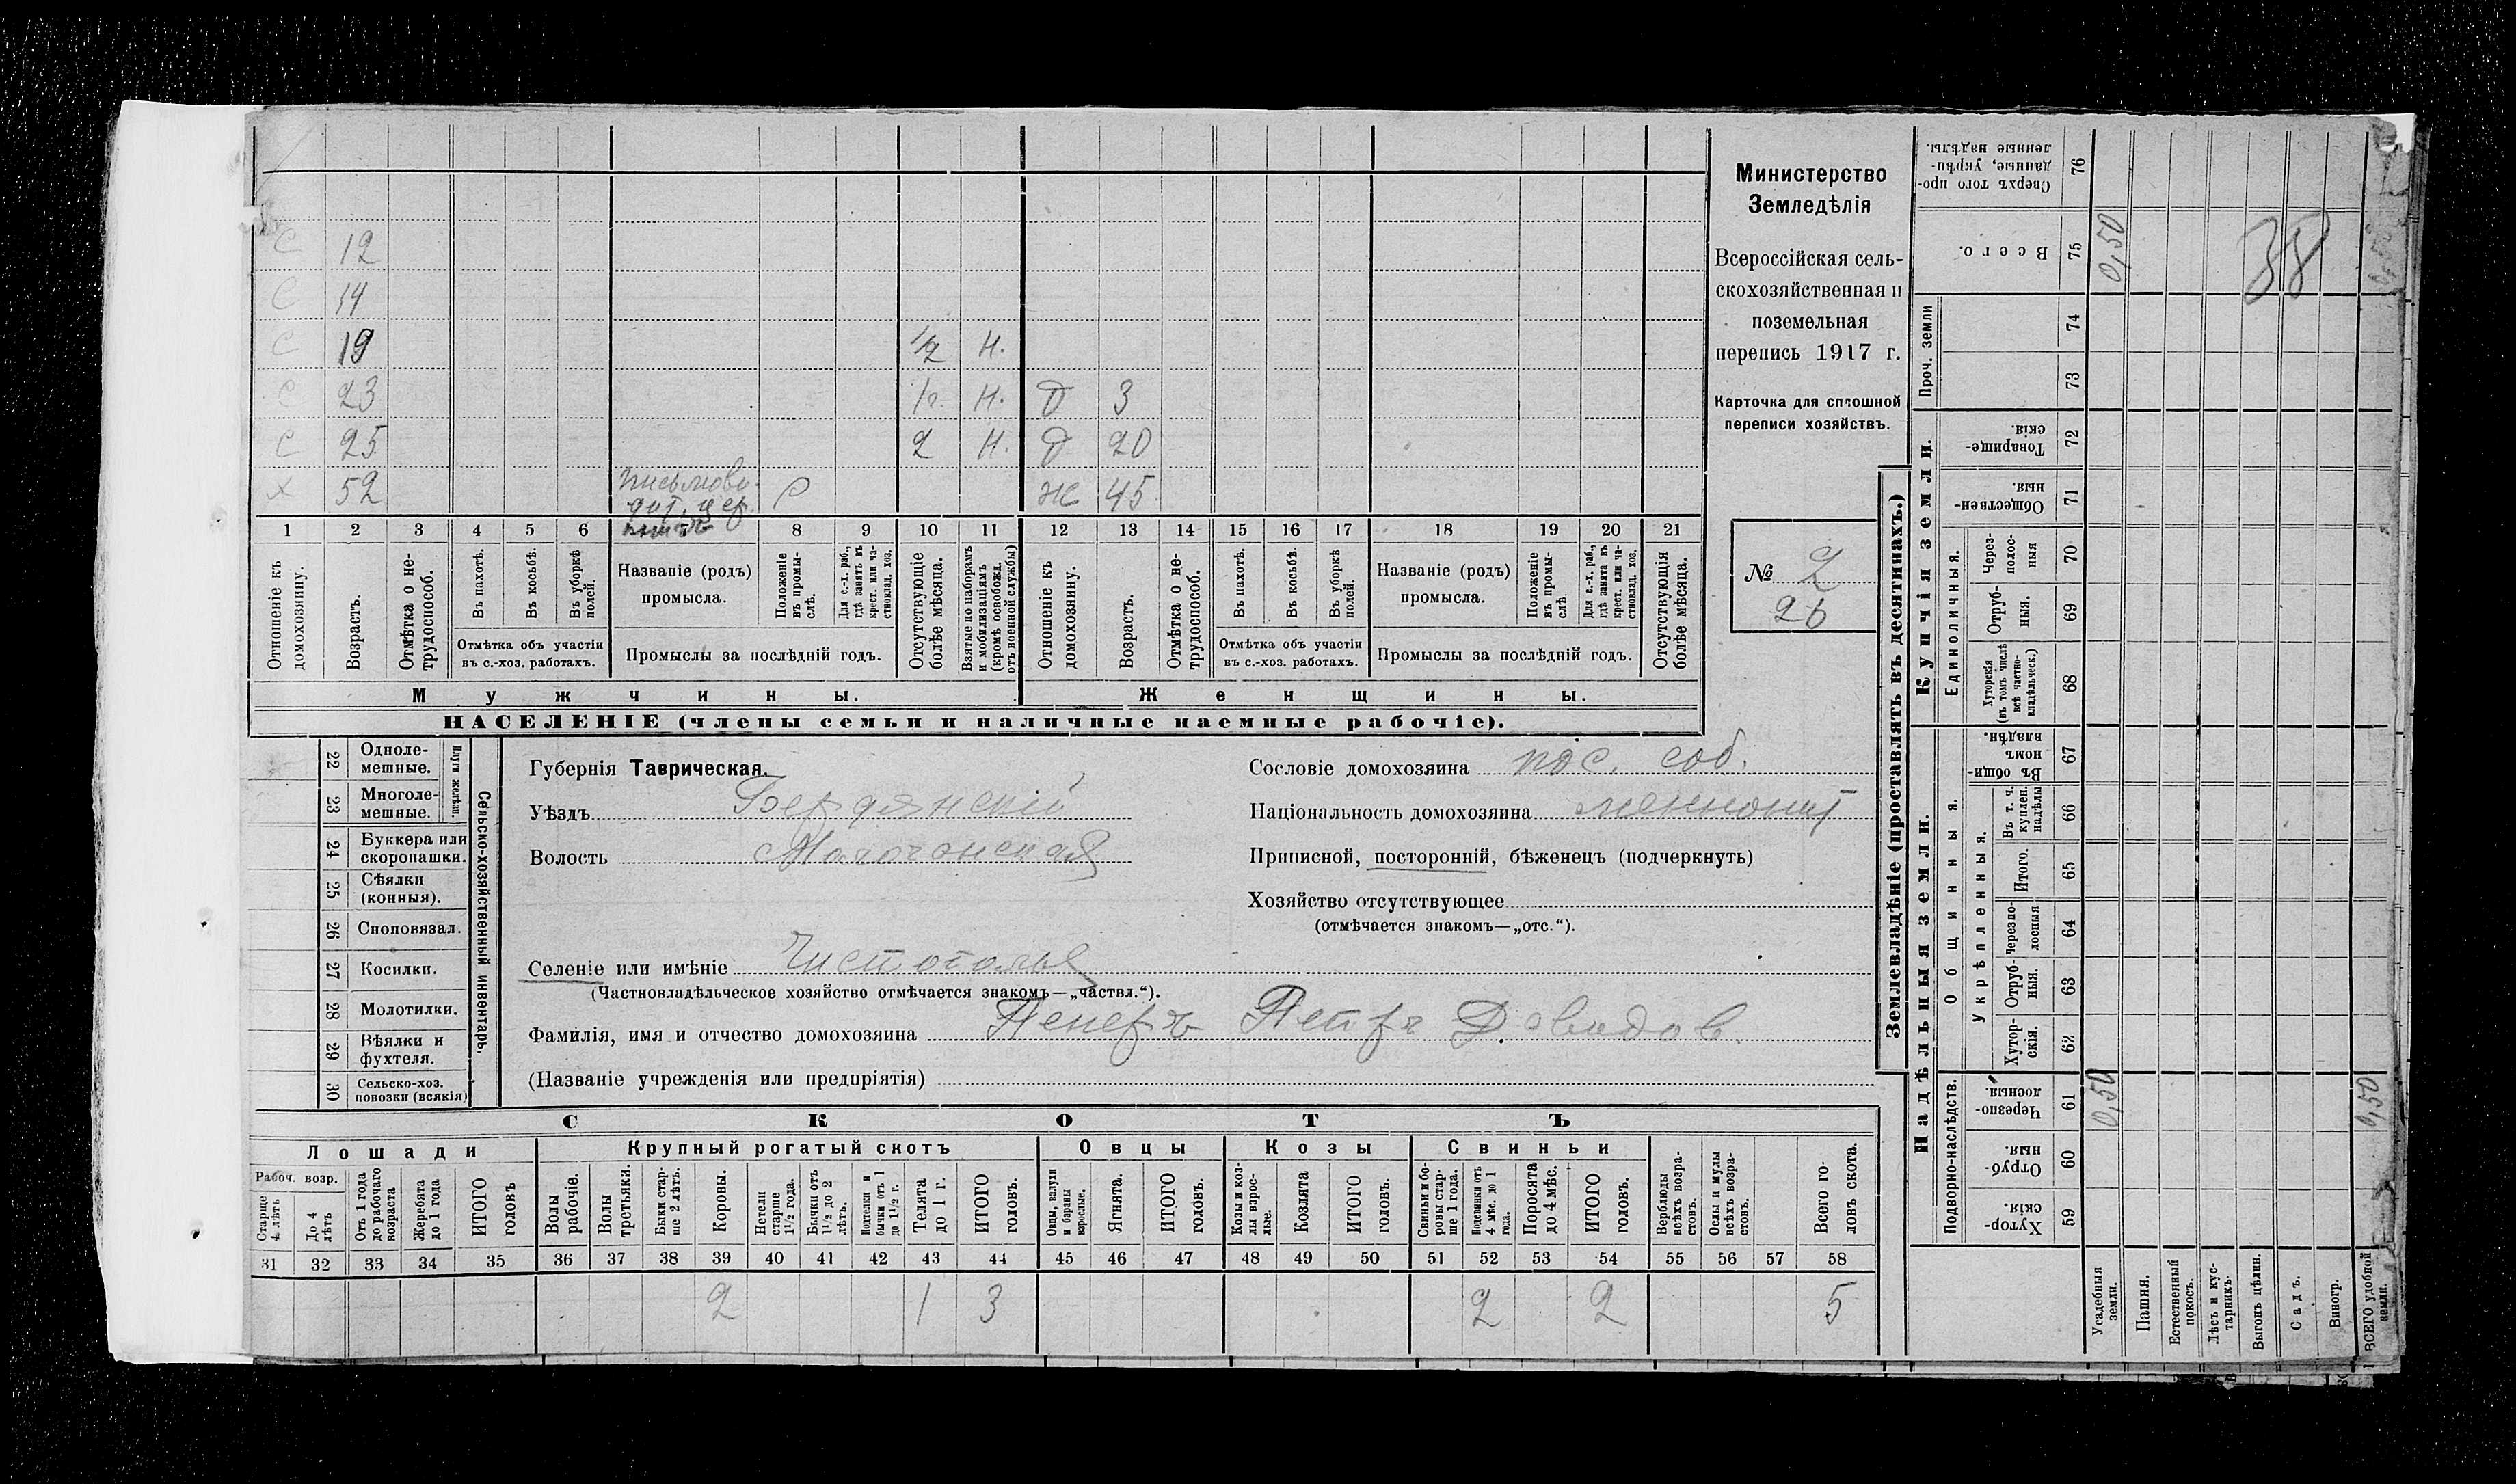 С 12
С 14
С 19 1/2 Н.
С 23 1 г. Н. Д 3
С 25 2 Н. Д 20
Х 52 С Ж 45
1 2 3 4 5 6 8 9 10 11 12 13 14 15 16 17 18 19 20 21
Отношеніе къ домохозяину.
Возрастъ.
Отмѣтка о нетрудоспособ.
Въ пахотѣ.
Въ косьбѣ.
Въ уборкѣ полей.
Отмѣтка объ участіи
въ с.-хоз. работахъ.
Названіе (родъ)
промысла.
Положеніе въ промыслѣ.
Для с.-х. раб., гдѣ занятъ въ крест. или частновлад. хоз.
Промыслы за послѣдній годъ.
Отсутствующіе болѣе мѣсяца.
Взятые по наборамъ и мобилизаціямъ (кромѣ освобожд. отъ военной службы)
Отношеніе къ домохозяину.
Возрастъ.
Отмѣтка о нетрудоспособ.
Въ пахотѣ.
Въ косьбѣ.
Въ уборкѣ полей.
Отмѣтка объ участіи
въ с.-хоз. работахъ.
Названіе (родъ)
промысла.
Положеніе въ промыслѣ.
Для с.-х. раб., гдѣ занята въ крест. или частновлад. хоз.
Промыслы за послѣдній годъ.
Отсутствующія болѣе мѣсяца.
Мужчины.
Женщины.
НАСЕЛЕНІЕ (члены семьи и наличные наемные рабочіе).
Министерство
Земледѣлія
Всероссійская сель-
скохозяйственная и
поземельная
перепись 1917 г.
Карточка для сплошной
переписи хозяйствъ.
№ 2
26
22 Одноле-
мешные.
23 Многоле-
мешные.
Плуги желѣзн.
24 Буккера или
скоропашки.
25 Сѣялки
(конныя).
26 Сноповязал.
27 Косилки.
28 Молотилки.
29 Вѣялки и
фухтеля.
30 Сельско-хоз.
повозки (всякія)
Сельско-хозяйственный инвентарь.
Губернія Таврическая.
Уѣздъ Бердянскій
Волость Молочанская
Селеніе или имѣніе Чистополье
(Частновладѣльческое хозяйство отмѣчается знакомъ—„частвл.“).
Фамилія, имя и отчество домохозяина Пенеръ Петръ Давидов.
(Названіе учрежденія или предпріятія)
Сословіе домохозяина пос. соб.
Національность домохозяина меннонит
Приписной, посторонній, бѣженецъ (подчеркнуть)
Хозяйство отсутствующее
(отмѣчается знакомъ—„отс.“).
СКОТЪ
Лошади
Крупный рогатый скотъ
Овцы
Козы
Свиньи
Рабоч. возр.
Старше 4 лѣтъ
До 4 лѣтъ
Отъ 1 года до рабочаго возраста
Жеребята до 1 года
ИТОГО головъ
Волы рабочіе.
Волы третьяки.
Быки старше 2 лѣтъ.
Коровы.
Нетели старше 1½ года.
Бычки отъ 1½ до 2 лѣтъ.
Подтелки и бычки отъ 1 до 1½ г.
Телята до 1 г.
ИТОГО головъ.
Овцы, валухи и бараны взрослые.
Ягнята.
ИТОГО головъ.
Козы и козлы взрослые.
Козлята
ИТОГО головъ.
Свиньи и боровы старше 1 года.
Подсвинки отъ 4 мѣс. до 1 года.
Поросята до 4 мѣс.
ИТОГО головъ.
Верблюды всѣхъ возрастовъ.
Ослы и мулы всѣхъ возрастовъ.
Всего головъ скота.
31 32 33 34 35 36 37 38 39 40 41 42 43 44 45 46 47 48 49 50 51 52 53 54 55 56 57 58
2 1 3 2 2 5
Землевладѣніе (проставлять въ десятинахъ.)
Купчія земли.
Надѣльныя земли.
Сверхъ того проданные, укрѣпленные надѣлы. 76
Всего. 75 0,50
38
Проч. земли 74
73
Товарищескія. 72
Общественныя. 71
Единоличныя.
Черезполосныя 70
Отрубныя. 69
Хуторскія (въ томъ числѣ всѣ частновладѣльческ.) 68
Общинныя.
Въ общиномъ владѣн. 67
Укрѣпленныя.
Въ т. ч. куплен. надѣлы 66
Итого. 65
Черезполосныя 64
Отрубныя. 63
Хуторскія. 62
Подворно-наслѣдств.
Черезполосныя. 61 0,50 0,50
Отрубныя. 60
Хуторскія. 59
Усадебныя земли.
Пашня.
Естественный покосъ.
Лѣсъ и кустарникъ.
Выгонъ цѣлин.
Садъ.
Виногр.
ВСЕГО удобной земли.